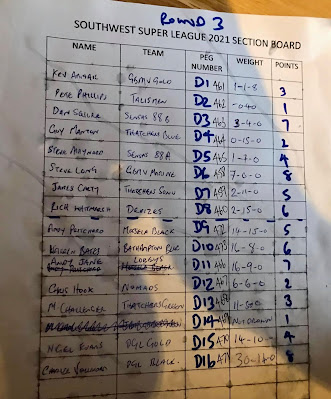 ROUND 3
SOUTHWEST SUPER LEAGUE 2021 SECTION BOARD
NAME TEAM PEG NUMBER WEIGHT POINTS
KEV GBMV GOLD D1 A61 1-1-8 3
PETE PHILLIPS TALISMEN D2 A62 -0-40 1
DEN SENSAS 88B D3 A63 3-4-0 7
GUY MANTON THATCHERS BLUE D4 A64 0-15-0 2
STEVE MAYNARD SENSAS 88A D5 A65 1-7-0 4
STEVE LONG GBMV MARINE D6 7-0-0 8
JAMES CARTY THATCHERS D7 A59 2-11-0 5
RICH WHITMARSH DEVIZES D8 A60 2-15-0 6
ANDY PRITCHARD MOSELLA BLACK D9 14-15-0 5
BATES BATHAMPTON BLUE D10 -8-0 6
ANDY JANE LOBBYS D11 16-9-0 7
CHRIS HOOK NOMADS D12 6-6-0 2
M CHALLENGER THATCHERS GREEN D13 3
D14 1
NIGEL EVANS DGL GOLD D15 14-10-0 4
DGL BLACK D16 30-14-0 8